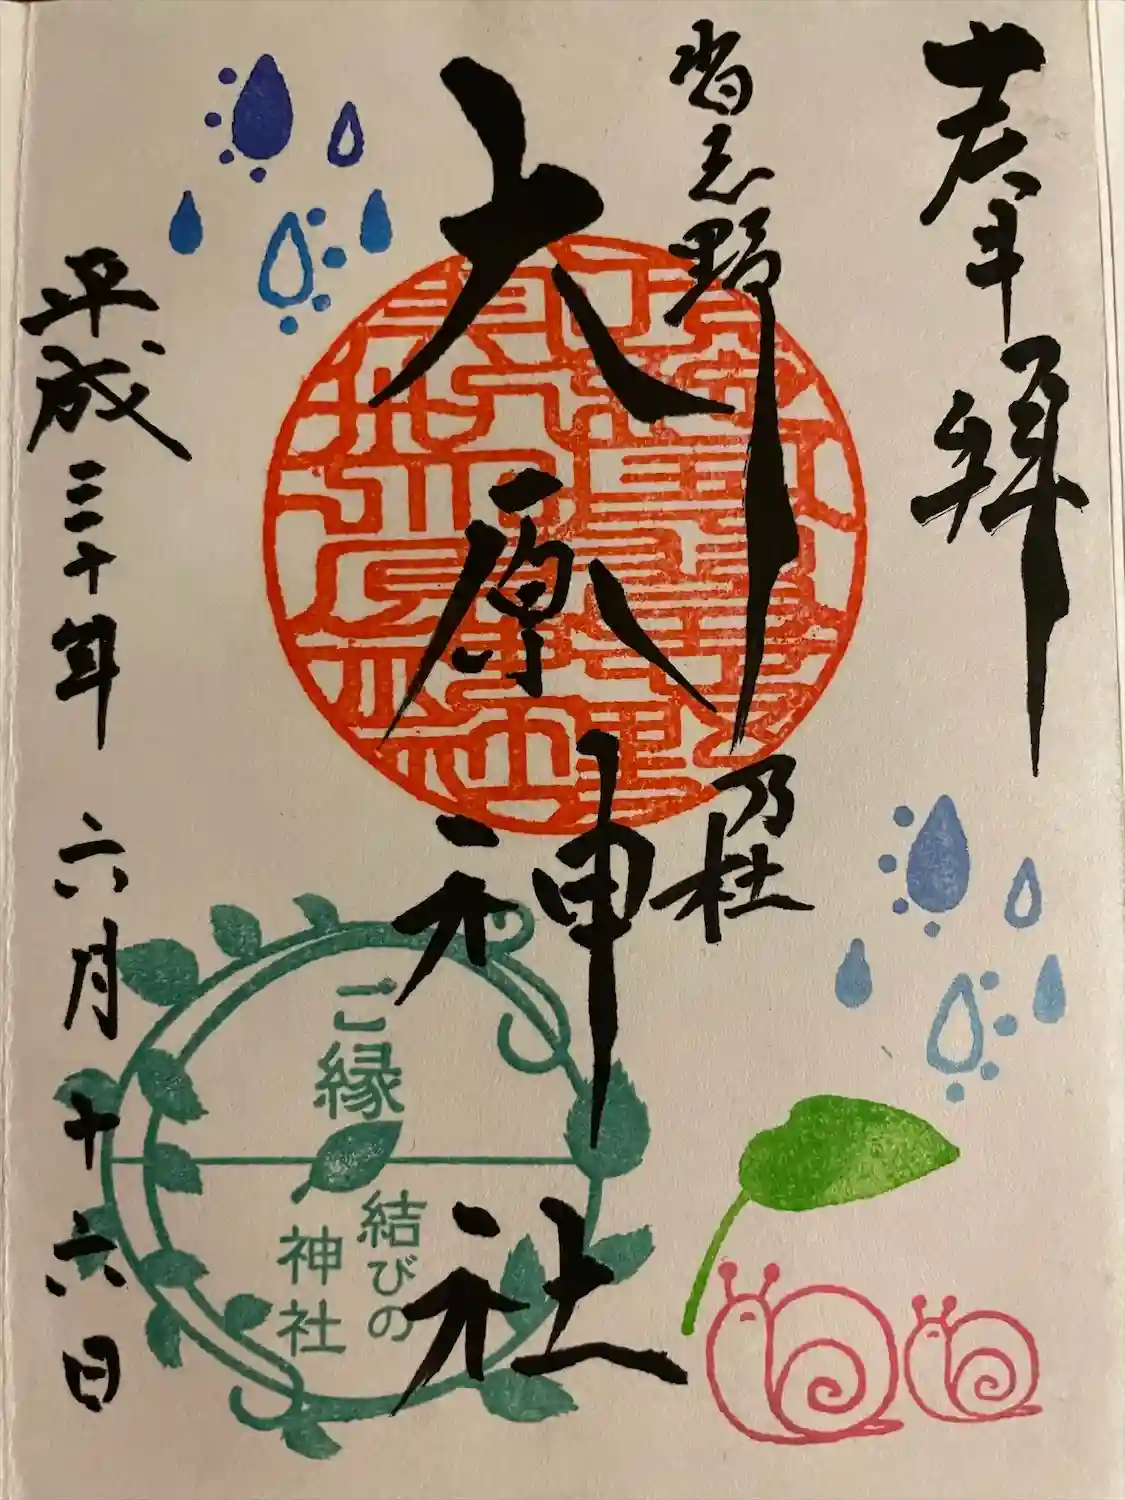 奉拝
習志野
乃杜
大原神社
ご縁
結びの
神社
平成三十年 六月十六日